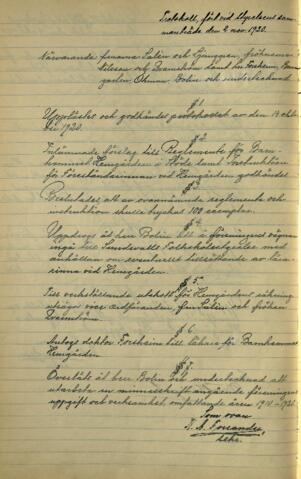 Protokoll, fört vid styrelsens sam-
manträde den 2 nov. 1920.
Närvarande fruarna Salin och Ljunggren, fröknarna
och Brandheim samt hrr Forsheim,
Öhman, Bolin och undertecknad.
§ 1.
Upplästes och godkändes protokollet av den 14 okto-
ber 1920.
§ 2.
Inlämnade förslag till Reglemente för Barn-
hemmet Hemgården i samt Instruktion
för Föreståndarinnan vid Hemgården godkändes.
§ 3.
Beslutades att av ovannämnda reglemente och
instruktion skulle tryckas 100 exemplar.
§ 4.
Uppdrogs åt herr Bolin att å föreningens vägnar
ingå till Sundsvalls Folkskolestyrelse med
anhållan om eventuellt tillsättande av lära-
rinna vid Hemgården.
§ 5.
Till verkställande utskott för Hemgårdens räkning
utsågs vice ordföranden fru Salin och fröken
§ 6.
Antogs doktor Forsheim till läkare för Barnhemmet
Hemgården.
§ 7.
Överläts åt herr Bolin och undertecknad att
utarbeta en minnesskrift angående föreningens
uppgift och verksamhet, omfattande åren 1911-1921.
Som ovan
sekr.